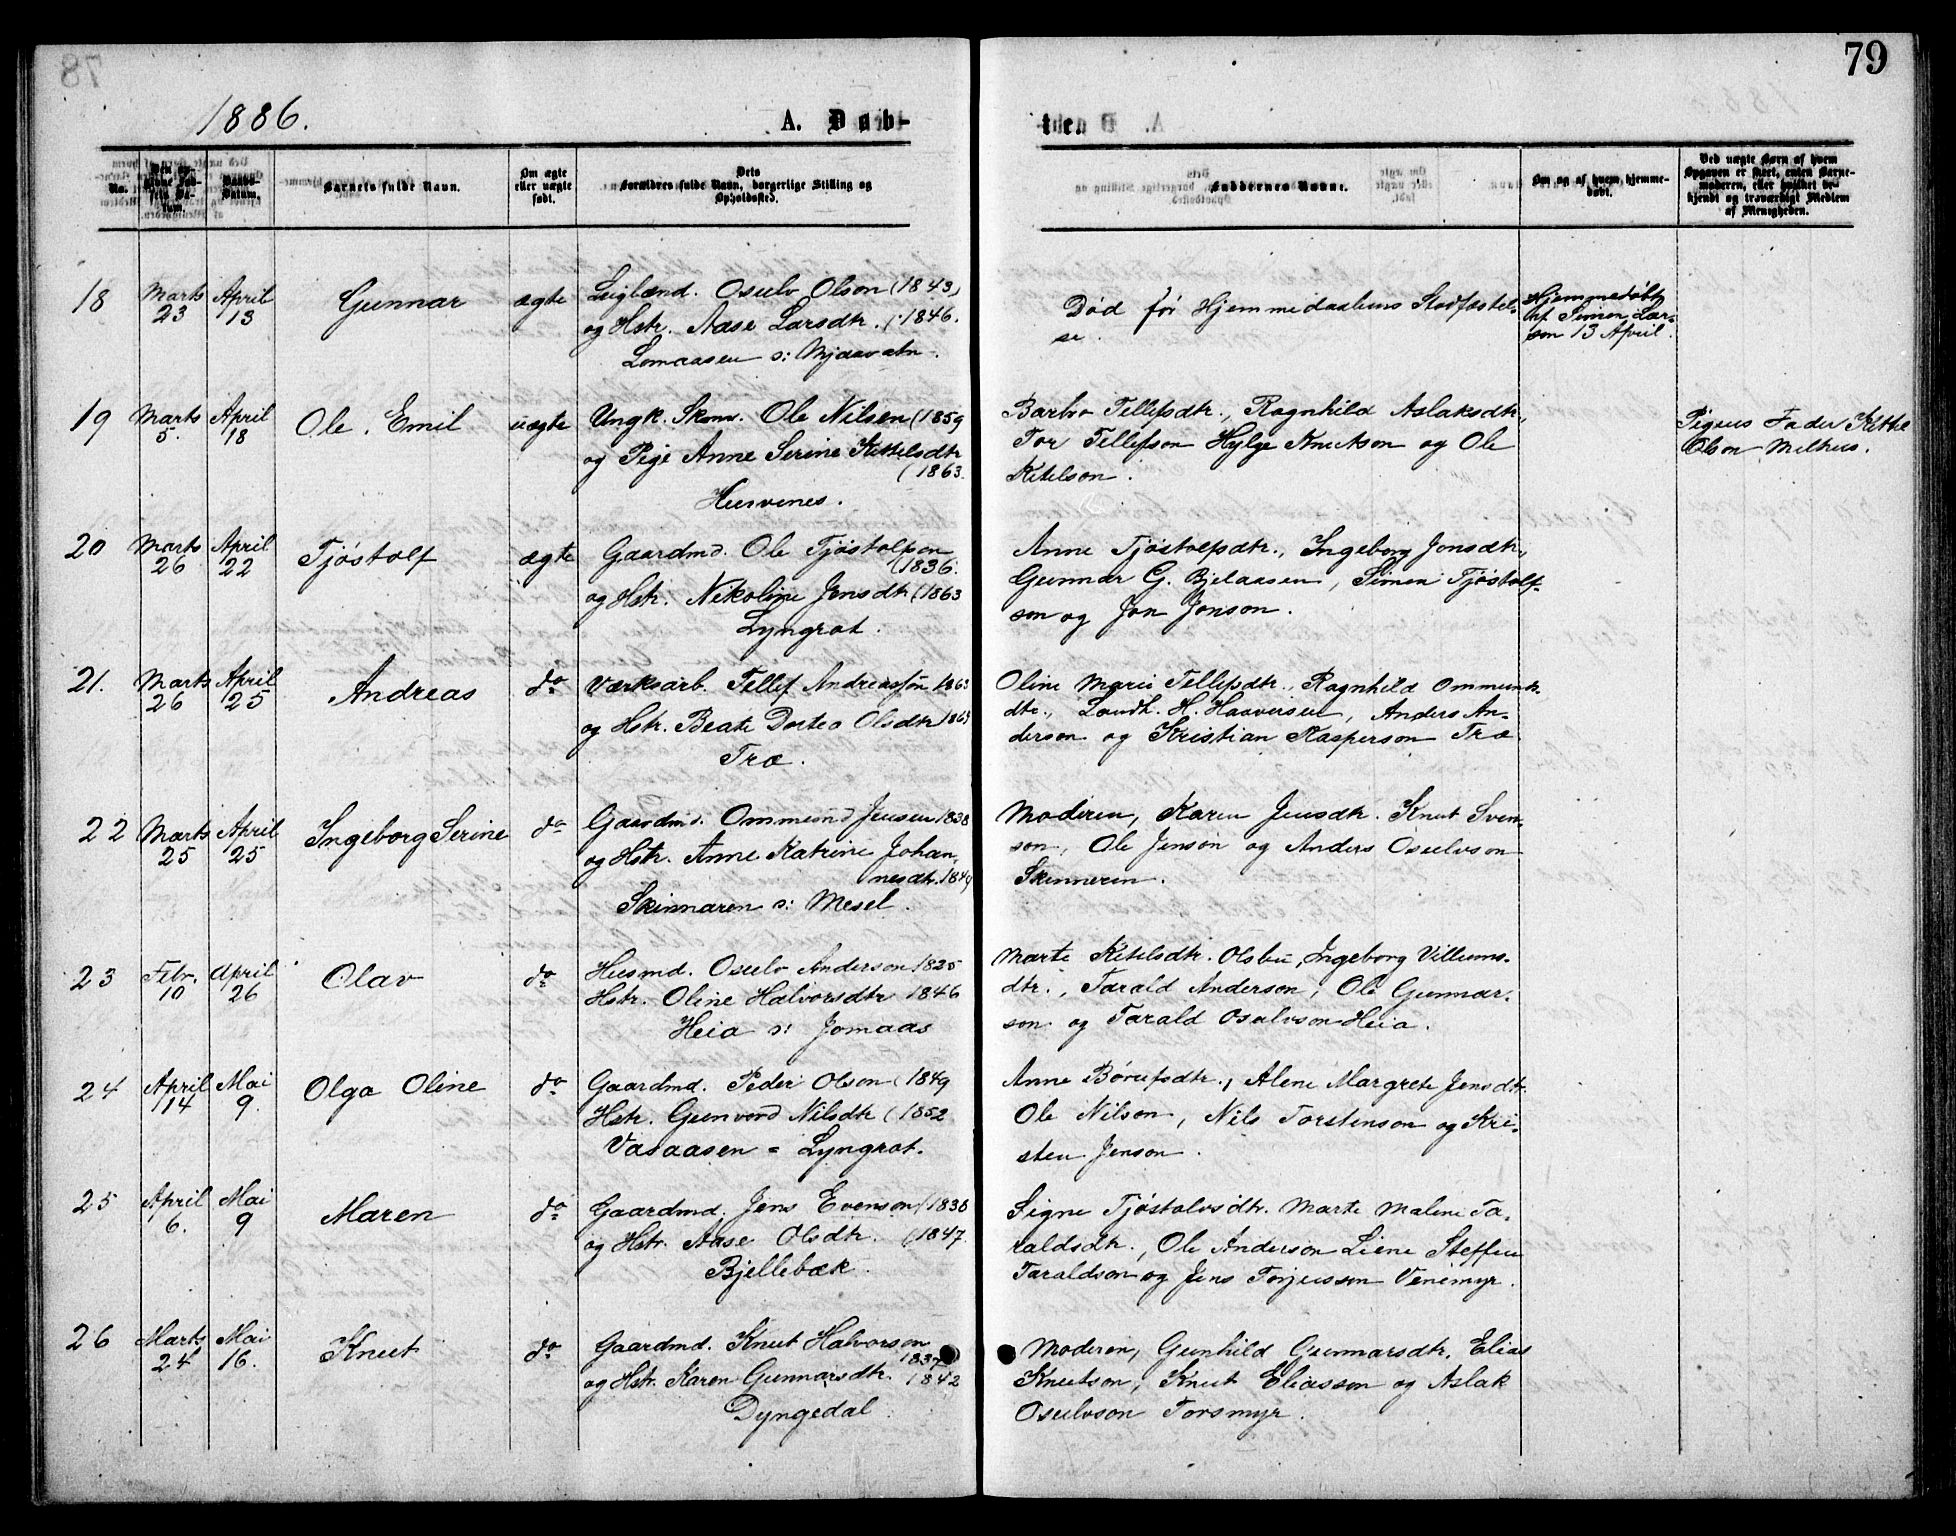 79
1886.
A. Døb-
ten.
No.
Den opgivne Fødsels Datum.
Daabs-Datum.
Barnets fulde Navn.
Om ægte eller uægte født.
Dets Forældres fulde Navn, borgerlige Stilling og Opholdssted.
Faddernes Navne.
Om og af hvem hjemmedøbt.
Ved uægte Børn af hvem Opgaven er skeet, enten Barnemoderen, eller hvilket bekjendt og troværdigt Medlem af Menigheden.
18 Marts 23 April 13 Gunnar ægte
Leiglænd. Osulv Olson (1843)
og Hstr. Aase Larsdtr. (1846.
Lomaasen s: Mjaavatn.
Død før Hjemmedaabens Stadfæstel-
se.
Hjemmedøbt
af Simen Lar-
son 13 April.
19 Marts 5. April 18 Ole Emil uægte
Ungk. Skom. Ole Nilsen (1859
og Pige Anne Serine Kittelsdtr
(1863.
Husvenes.
Barbro Tellefsdtr., Ragnhild Aslaksdtr,
Tor Tellefson Hylge Knutson og Ole
Kitelson.
Pigens Fader Kittel
Olson Melhus.
20 Marts 26. April 22 Tjøstolf ægte
Gaardmd. Ole Tjøstolfson
(1836.
og Hstr. Nikoline Jensdtr (1863
Lyngrot.
Anne Tjøstolfsdtr., Ingeborg Jonsdtr,
Gunnar G. Bjelaasen, Simen Tjøstolf-
son og Jon Jonson.
21. Marts 26 April 25 Andreas do
Værksarb. Tellef Andreassøn 1863
og Hstr. Beate Dortea Olsdtr 1863
Træ.
Oline Marie Tellefsdtr., Ragnhild Ommunds-
dtr., Landh. H. Haaversen, Anders An-
derson og Kristian Kasperson Træ.
22 Marts 25 April 25 Ingeborg Serine do
Gaardmd. Ommund Jensen 1838
og Hstr. Anne Katrine Johan-
nesdtr. 1849
Skinnaren s: Mesel.
Moderen, Karen Jensdtr. Knut Sven-
son, Ole Jenson og Anders Osulvson
Skinneren.
23 Febr. 10 April 26 Olav do
Husmd. Osulv Anderson 1825
Hstr. Oline Halvorsdtr 1846
Heia s: Jomaas
Marte Kitelsdtr. Olsbu, Ingeborg Villums-
dtr., Tarald Anderson, Ole Gunnar-
son og Tarald Osulvson Heia.
24 April 14 Mai 9. Olga Oline do
Gaardmd. Peder Olson (1849
Hstr. Gunvord Nilsdtr (1852
Vasaasen = Lyngrot.
Anne Børufsdtr., Alene Margrete Jensdtr.
Ole Nilson, Nils Torstenson og Kri-
sten Jenson.
25 April 6. Mai 9 Maren do
Gaardmd. Jens Evenson (1838
og Hstr. Aase Olsdtr. (1847.
Bjellebæk.
Signe Tjøstolvsdtr. Marte Malene Ta-
raldsdtr., Ole Anderson Liene Steffen
Taraldson og Jens Torjusson Venemyr.
26 Marts 24 Mai 16. Knut do
Gaardmd. Knut Halvorson
1837
og Hstr. Karen Gunnarsdtr. 1842
Dyngedal.
Moderen, Gunhild Gunnarsdtr. Elias
Knutson, Knut Eliasson og Aslak
Osulvson Torsmyr.